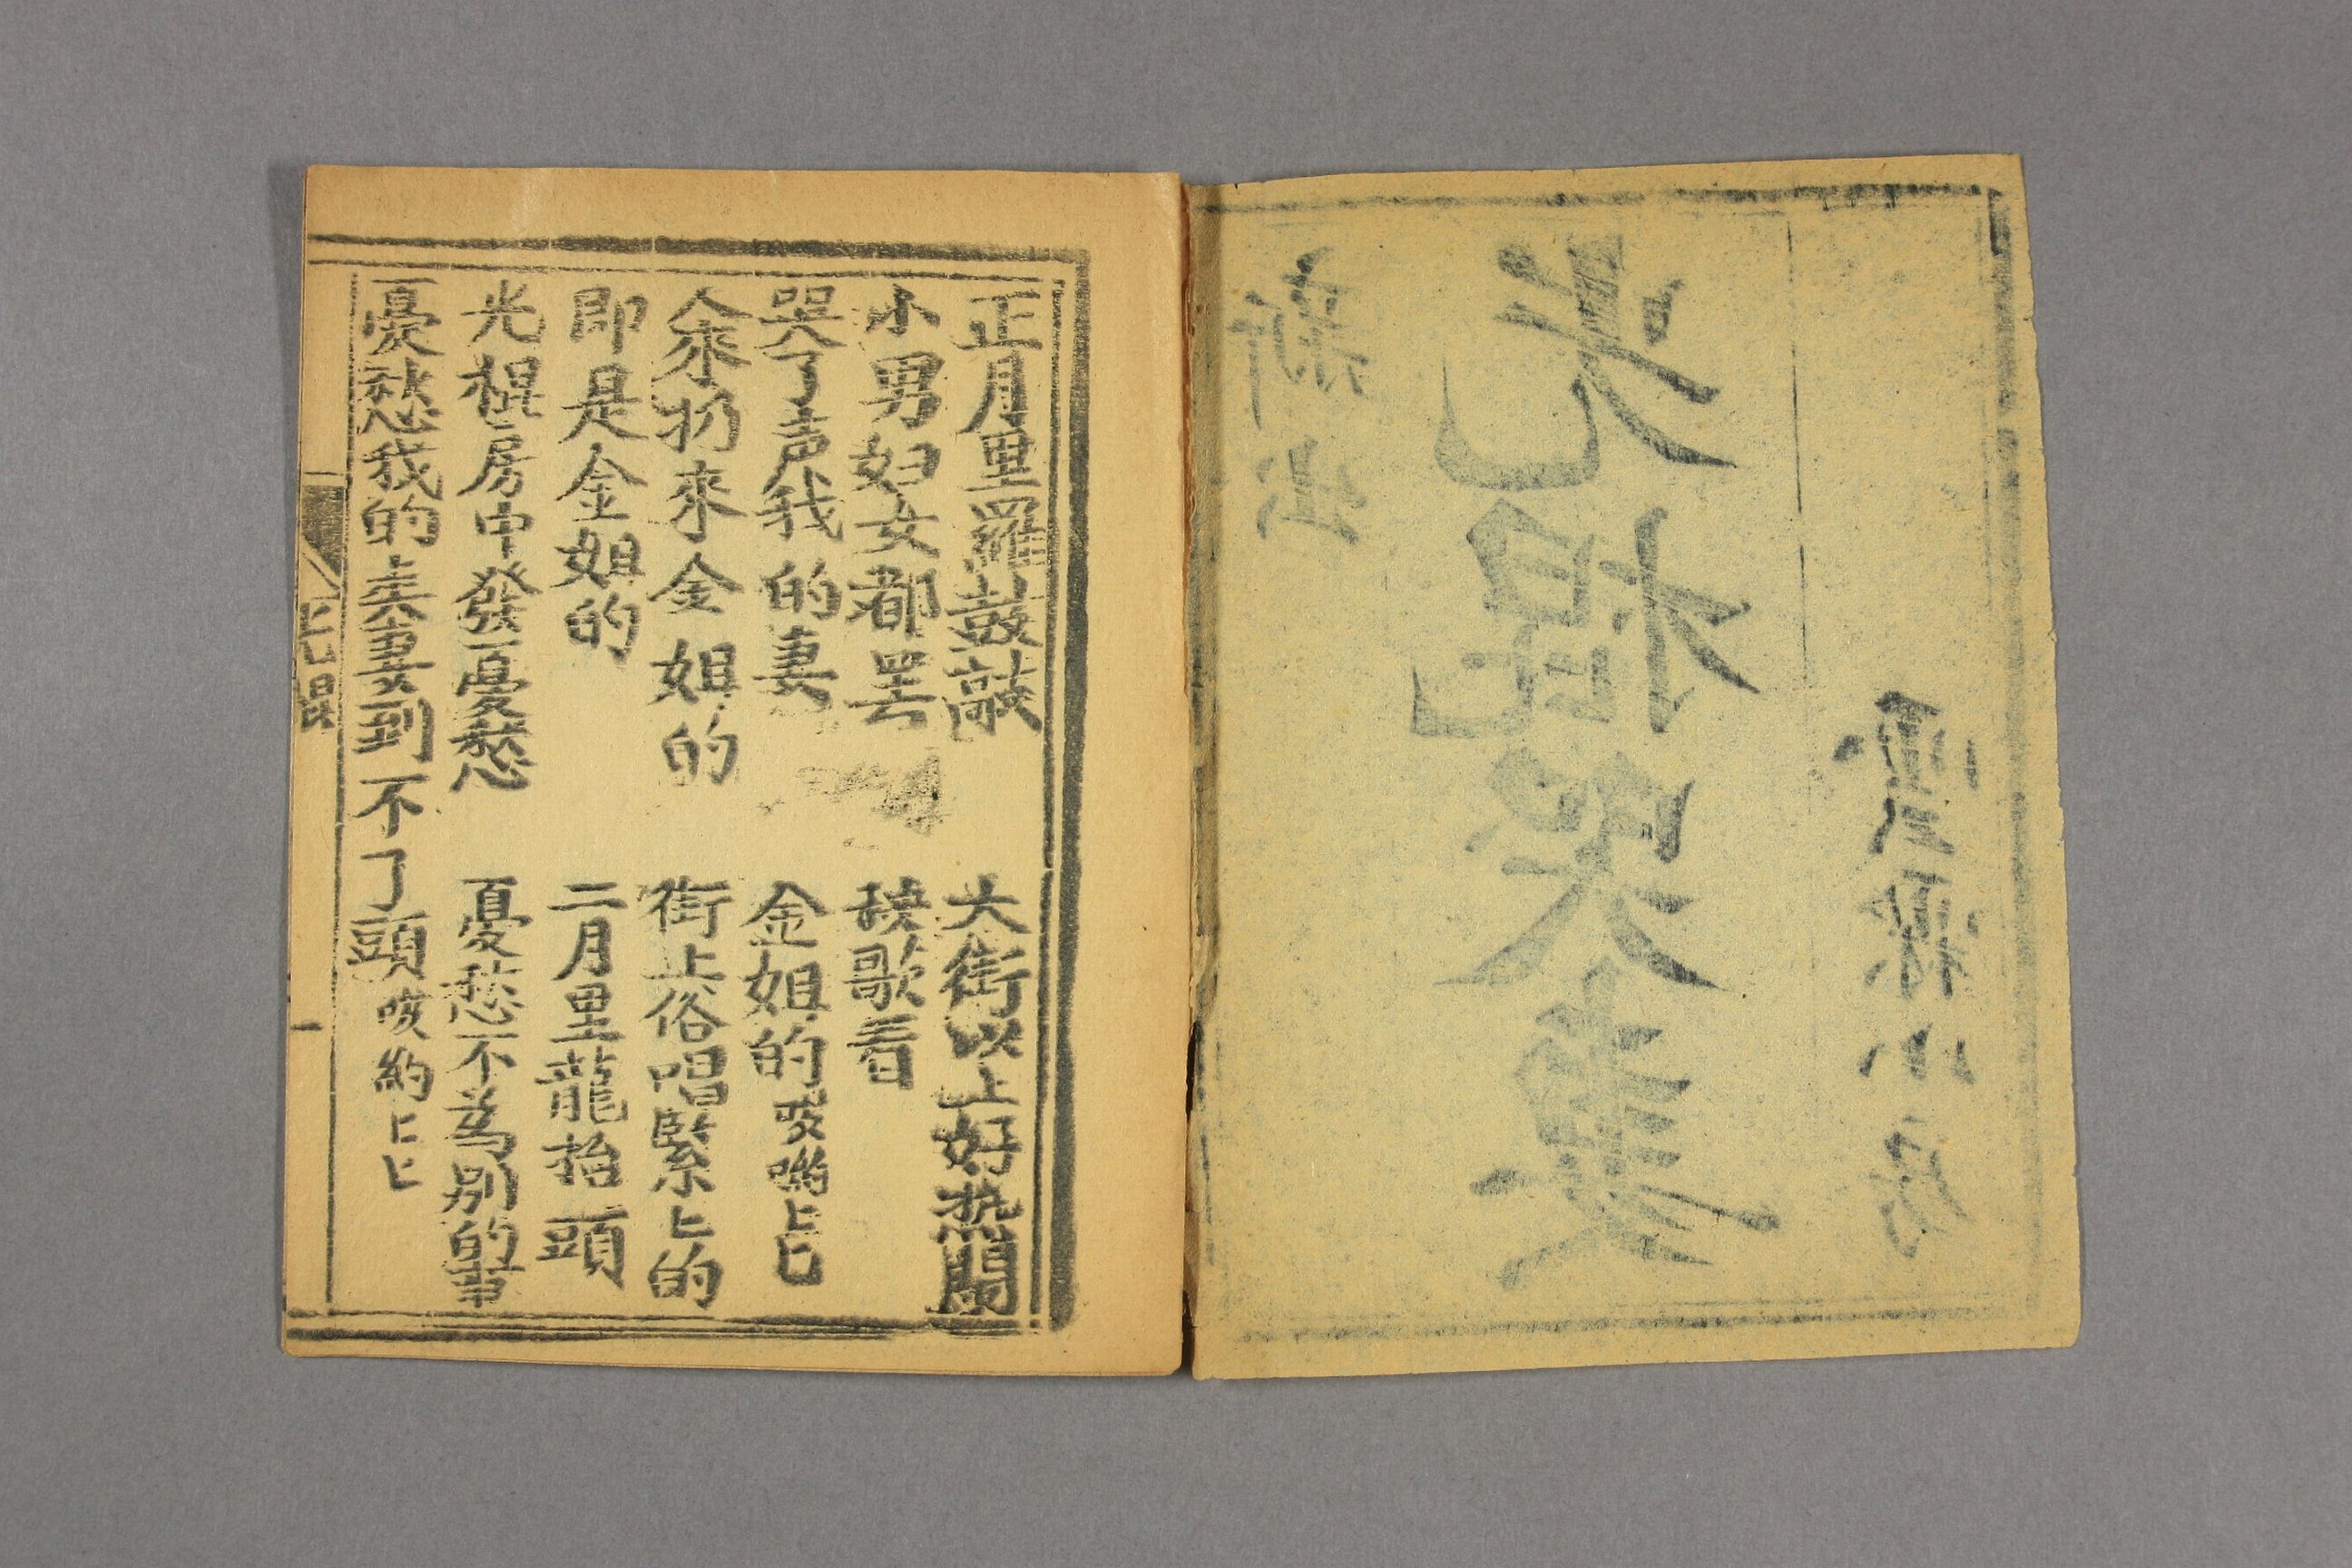 雲霖小房
光棍哭妻
新出
正月里羅鼓敲 大街以上好热闹
小男妇女都罢 秧歌看
哭了声我的妻 金姐的哎喲〻
籴扔來金姐的 街上俗唱緊〻的
即是金姐的 二月里龍抬頭
光棍房中發憂愁 憂愁不为别的事
憂愁我的妻到不了頭 哎約〻〻
光棍
一